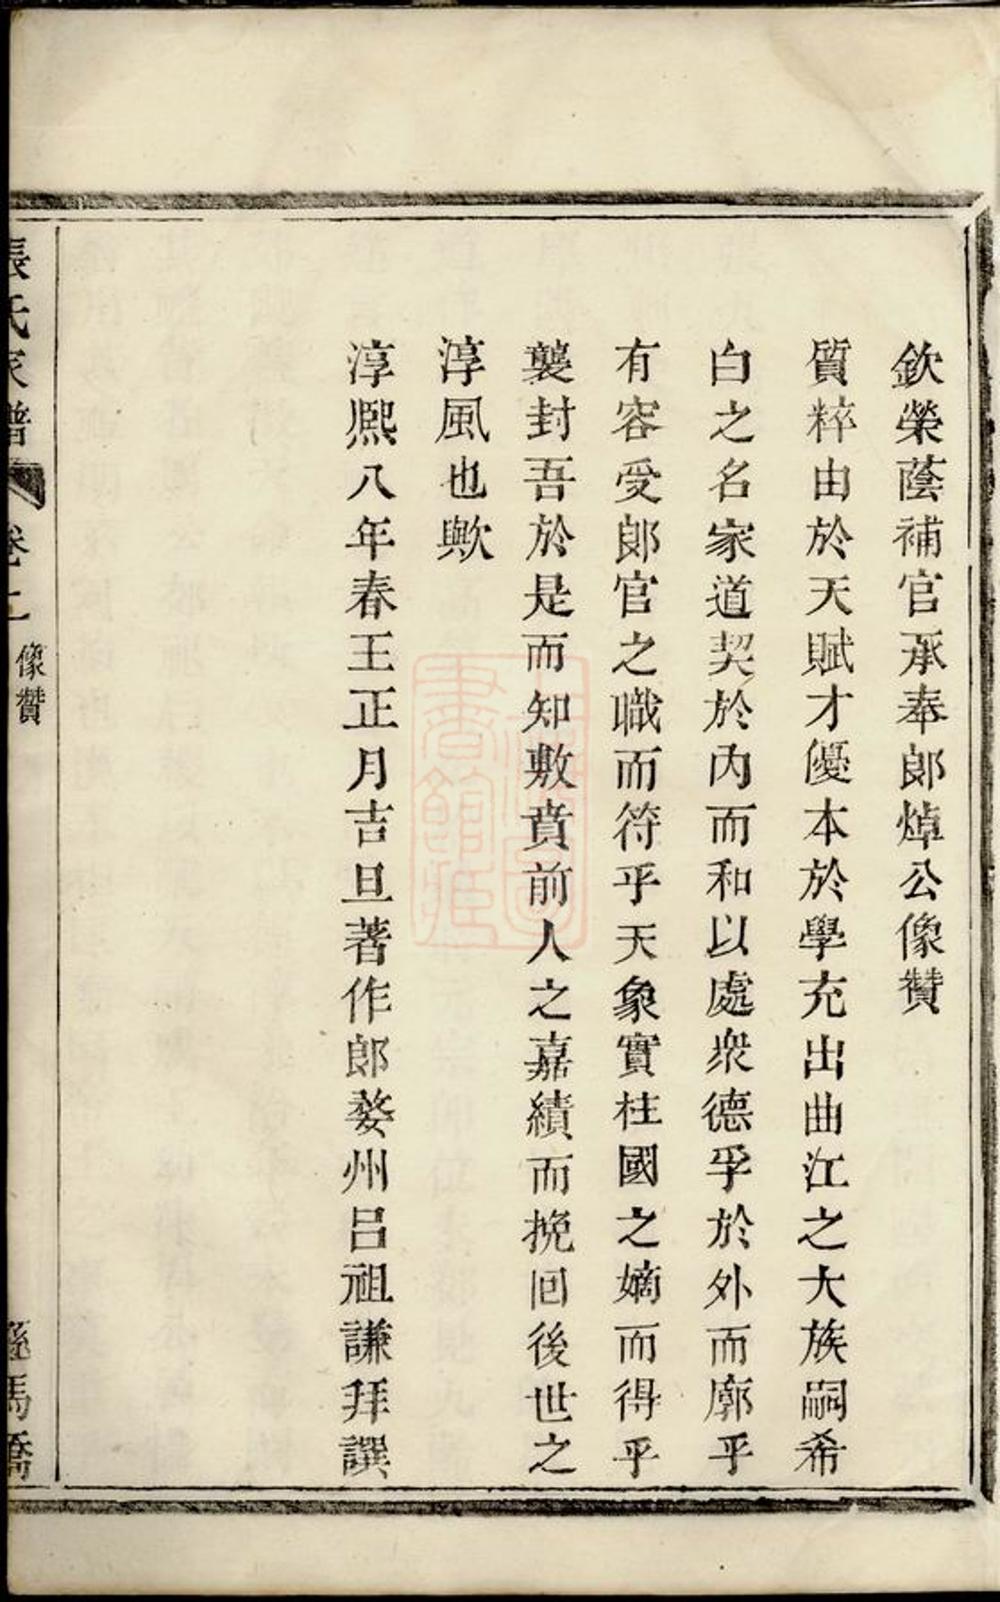 欽榮蔭補官承奉郎焯公像贊
質粹由於天賦才優本於學充出曲江之大族嗣希
白之名家道契於內而和以處衆德孚於外而廓乎
有容受郞官之職而符乎天象實柱國之嫡而得乎
襲封吾於是而知敷賁前人之嘉績而挽回後世之
淳風也歟
淳熙八年春王正月吉旦著作郎婺州呂祖謙拜譔
張氏家譜
卷上
像贊
馬橋